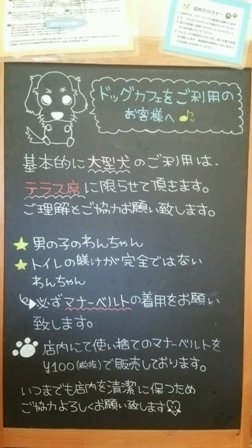 店内でのマナー
ドッグカフェをご利用の
お客様へ♪
基本的に大型犬のご利用は、
テラス席に限らせて頂きます。
ご理解とご協力お願い致します。
★男の子のわんちゃん
★トイレの躾けが完全ではない
わんちゃん
必ずマナーベルトの着用をお願い
致します。
店内にて使い捨てのマナーベルトを
¥100(税抜)で販売しております。
いつまでも店内を清潔に保つため
ご協力よろしくお願い致します♡